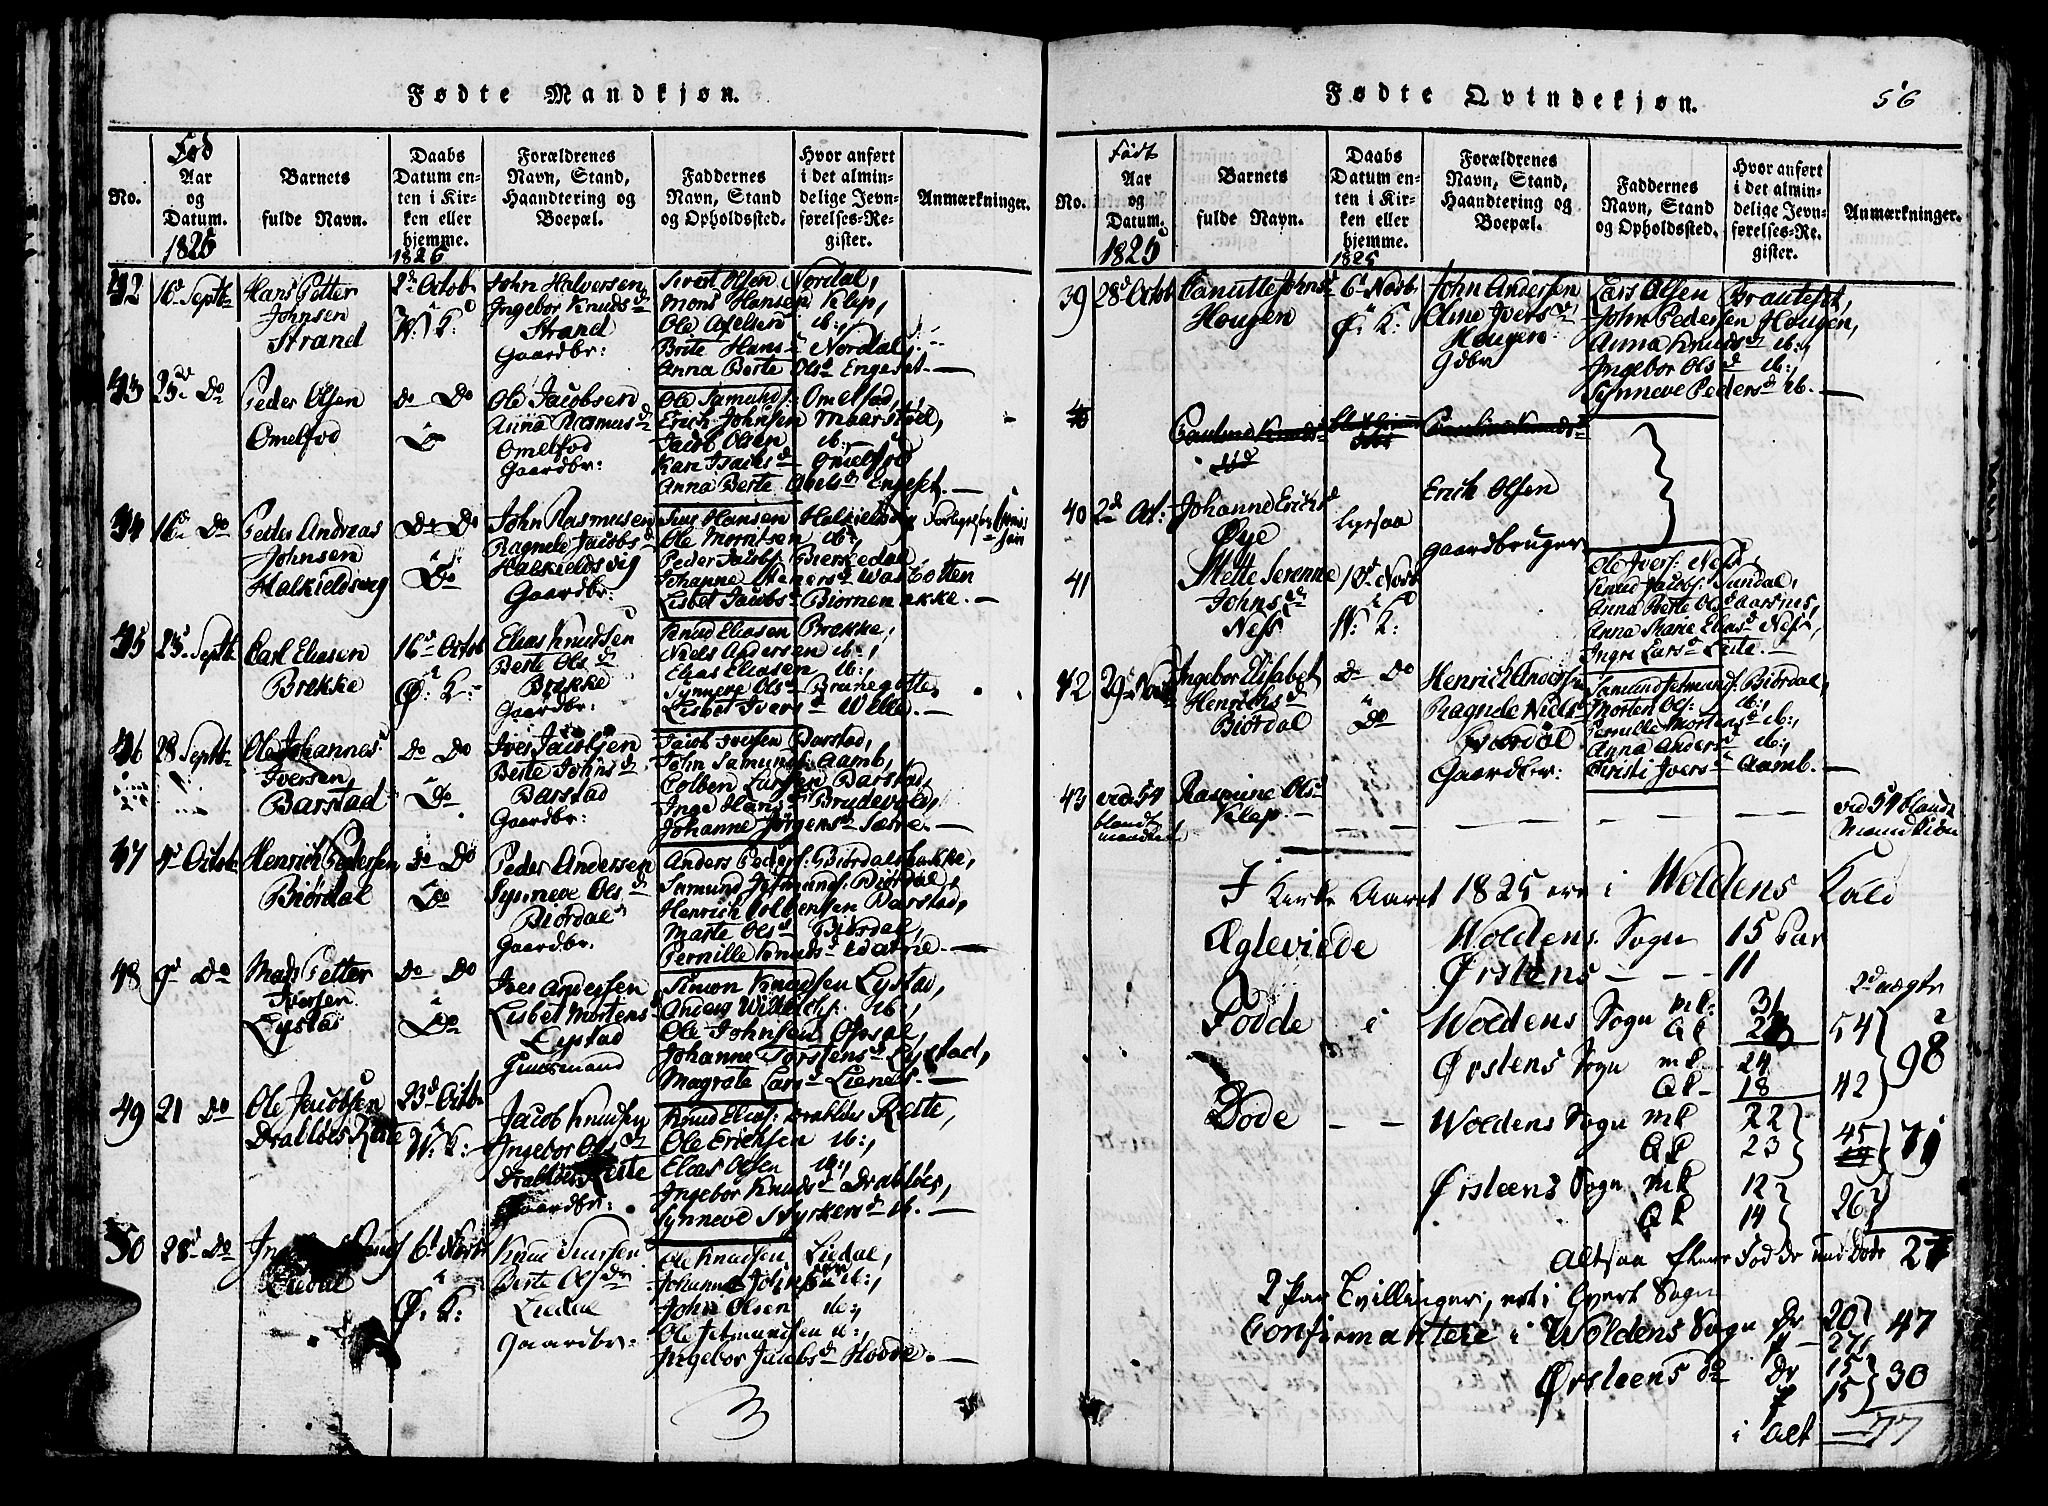 Fødte Mandkjøn.
No.
Fød
Aar
og
Datum.
1825
Barnets
fulde Navn.
Daabs
Datum en-
ten i Kir-
ken eller
hjemme.
1825
Forældrenes
Navn, Stand,
Haandtering og
Boepæl.
Faddernes
Navn, Stand
og Opholdssted.
Hvor anført
i det almin-
delige Jevn-
førelses-Re-
gister.
Anmærkninger.
42
16d Septbr
Hans Petter
Johnsen
Strand
2d Octob
W: K:
John Halversen
Ingebor Knudsd
Strand
Gaardbr:
Sivert Olsen Nordal,
Mons Hansen Klep,
Ole Axelsen ib:,
Brite Hansd Nordal,
Anna Berte Olsd Engeset.
43
25de Do
Peder Olsen
Omelfod
Do Do
Do
Ole Jacobsen
Anna Rasmusd
Omelfod
Gaardbr:
Ole Samunds: Omelfod,
Erich Johnsen Maarstöd,
Jacob Olsen ib:
Kari Isachsd Omelfod
Anna Berte Abelsd Engeset.
44
16d Do
Peder Andreas
Johnsen
Halkieldsvig
Do Do
Do
John Rasmusen
Ragnele Jacobsd
Halkieldsvig
Gaardbr:
Siur Hansen Halkieldsvig
Ole Moritsen ib:
Peder Jacobs: Bierkedal
Johanne Stenersd Wasbotten
Lisbet Jacobsd Biörnenakke.
45
25d Septb
Carl Eliasen
Brekke
16d Octob
Ø: K:
Elias Knudsen
Berte Olsd
Brekke
Gaardbr:
Knud Eliasen Brekke,
Niels Andersen ib:,
Elias Eliasen ib:,
Synneve Olsd Brunegotte,
Lisbet Iversd Welle.
46
28 Septbr
Ole Johannes
Iversen
Barstad
Do Do
Do
Iver Jacobsen
Berte Johnsd
Barstad
Gaardbr:
Jacob Iversen Barstad,
John Samunds: Aamb,
Colben Larsen Barstad,
Inge Hansd Brudevold,
Johanne Jörgensd Sætre.
47
4d Octob
Henrich Pedersen
Biördal
Do Do
Do
Peder Andersen
Synneve Olsd
Biördal
Gaardbr:
Anders Peders: Biördalsbakke,
Samund Jetmunds: Biördal,
Henrich Colbensen Barstad,
Marte Olsd Biördal,
Pernille Knudsd
48
9d Do
Mads Petter
Iversen
Lystad
Do Do
Do
Iver Andersen
Lisbet Mortensd
Lystad
Huusmand
Simon Knudsen Lystad,
Anders Willochs: ib:,
Ole Johnsen Opsal,
Johanne Torstensd Lystad,
Magrete Larsd Lienes.
49
21 Do
Ole Jacobsen
Drablös Reite
23d Octb
W: K:
Jacob Knudsen
Ingebor Olsd
Drablös Reite
Gaardbr:
Knud Elias: Drablös Reite,
Ole Erichsen ib:,
Elias Olsen ib:,
Ingebor Knudsd Drablöes,
Synneve Styrkersd ib.
50
28d Do
Liedal
6d Novb
Ø: K:
Knud Siursen
Berte Olsdr
Liedal
Gaardbr:
Ole Knudsen Liedal,
Johanne Johnsen ib:,
John Olsen ib:,
Ole Jetmundsen ib:,
Ingebor Jacobsd Hovde.
Fødte Qvindekjøn.
56
No.
Født
Aar
og
Datum.
1825
Barnets
fulde Navn.
Daabs
Datum en-
ten i Kir-
ken eller
hjemme.
1825
Forældrenes
Navn, Stand,
Haandtering og
Boepæl.
Faddernes
Navn, Stand
og Opholdssted.
Hvor anført
i det almin-
delige Jevn-
førelses-Re-
gister.
Anmærkninger.
39
28d Octob
Hougen
6d Novb
Ø: K:
John Andersen
Eline Iversd
Hougen
Gdbr
Lars Olsen Brauteset,
John Pedersen Hougen,
Anna Knudsd ib:,
Ingebor Olsd ib:,
Synneve Pedersd ib.
40
2d Oct:
Johanne Erichsd
Øye
Erich Olsen
Gaardbruger
41
Mette Serenne
Johnsd
Ness
13d Novb
W: K:
Ole Ivers: Ness,
Knud Jacobs: Sundal,
Anna Berte Olsd Aarsnes,
Anna Marie Eliasd Ness,
Ingri Larsd Leite.
42
Ingebor Elisabet
Henrichsd
Biördal
Do Do
Do
Henrich Anders:
Ragnele Nielsd
Biördal
Gaardbr:
Samund Jetmunds: Biördal,
Morten Ols: ib:,
Pernille Mortensd ib:,
Anna Andersd ib:,
Kristi Iversd Aamb.
43
vid 54
blandt
mandkiön
Rasmine Olsd
Klep.
vid 54 blandt
Mandkiön
I Kirke Aaret 1825 ere i Woldens Kald
Ægteviede Woldens Sogn 15 Par
Ørstens 11
2d uægte
Födde i Woldens Sogn mk: 31
Qk 23 54
Ørstens Sogn mk 24
Qk 18 42 98
Döde Woldens Sogn mk 22
Qk 23 45 71
Ørsteens Sogn mk 12
Qk 14 26
Altsaa flere Födde end Döde 27
2 Par Tvillinger, et i hvert Sogn
Confirmantere i Woldens Sogn Dr 20
P 27 47
Ørsteens Do Dr 15
P 15 30
i Alt 77